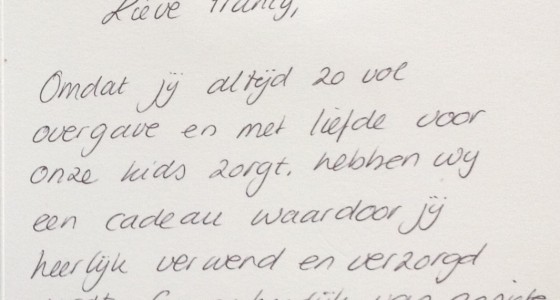 Lieve Francy,
Omdat jij altijd zo vol
overgave en met liefde voor
onze kids zorgt, hebben wij
een cadeau waardoor jij
heerlijk verwend en verzorgd